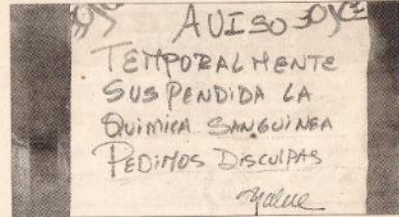 AVISO
TEMPORALMENTE
SUSPENDIDA LA
QUIMICA SANGUINEA
PEDIMOS DISCULPAS